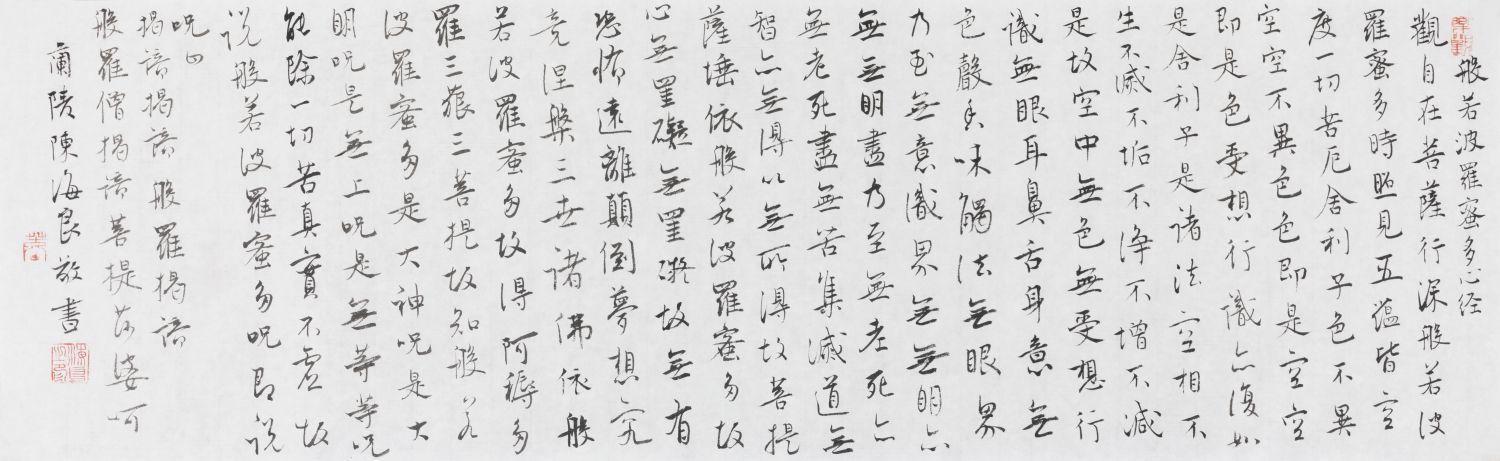 般若波羅蜜多心经
觀自在菩薩行深般若波
羅蜜多時照見五蕴皆空
度一切苦厄舍利子色不異
空空不異色色即是空空
即是色受想行識亦復如
是舍利子是諸法空相不
生不滅不垢不净不增不減
是故空中無色無受想行
識無眼耳鼻舌身意無
色聲香味觸法無眼界
乃至無意識界無無明亦
無無明盡乃至無老死亦
無老死盡無苦集滅道無
智亦無得以無所得故菩提
薩埵依般若波羅蜜多故
心無罣礙無罣礙故無有
恐怖遠離顛倒夢想究
竟涅槃三世諸佛依般
若波羅蜜多故得阿耨多
羅三藐三菩提故知般若
波羅蜜多是大神咒是大
明咒是無上咒是無等等咒
能除一切苦真實不虛故
説般若波羅蜜多咒即説
咒曰
揭諦揭諦般羅揭諦
般羅僧揭諦菩提莎婆呵
蘭陵陳海良敬書